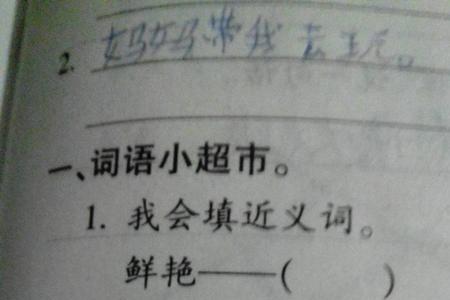 2. 妈妈带我去
一、词语小超市。
1. 我会填近义词。
鲜艳——(    )